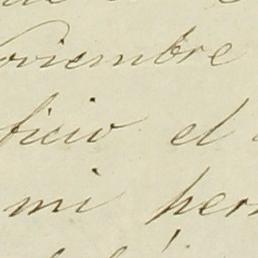 oviembre
ficio el
mi her